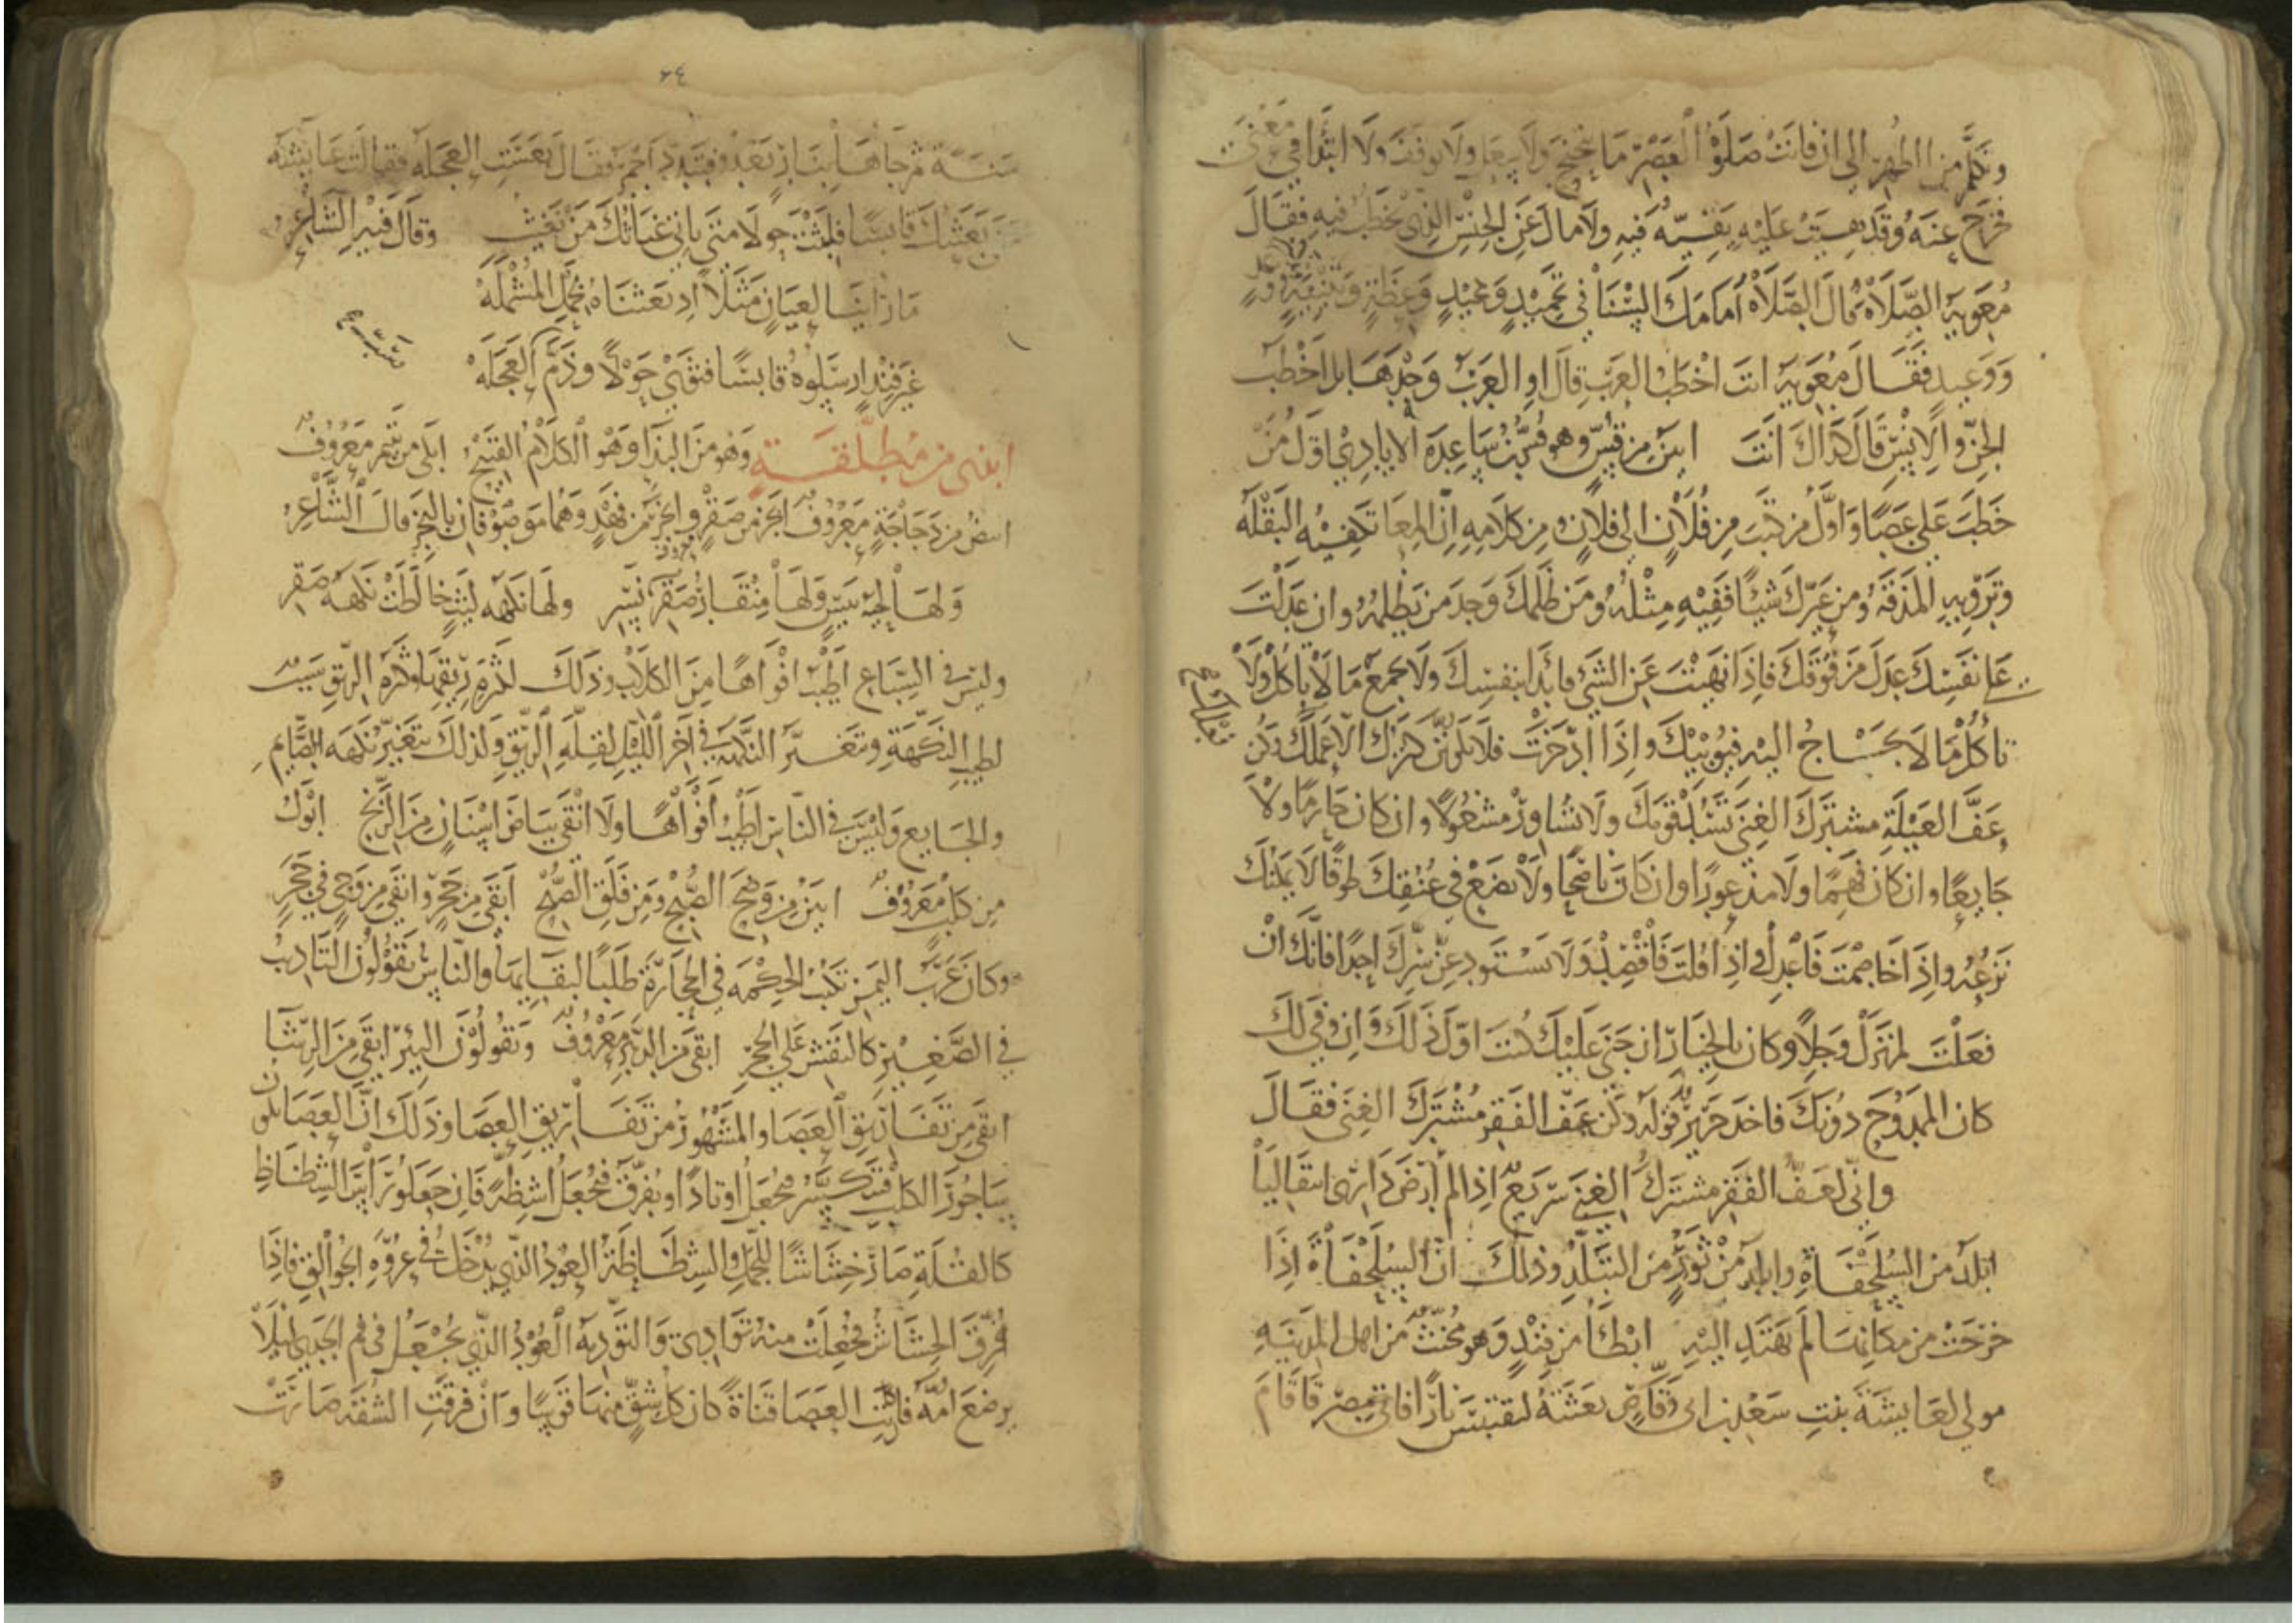 وتكلم من الظهر الى ان فاتت صلوة العصر ما تنحنح ولا سعل ولا توقف ولا ابتدأ في معنى
فخرج عنه وقد بقيت عليه بقية فيه ولا مال عن الجنس الذي يخطب فيه فقال
معوية الصلاة قال الصلاة امامك السنا في تحميد وتمجيد وعظة وتنبيه
ووعيد فقال معوية انت اخطب العرب قال او العرب وحدها بل اخطب
الجن والانس قال كذاك انت ابين من قس وهو قس بن ساعدة الايادي اول من
خطب على عصا واول من كتب من فلان الى فلان ومن كلامه ان المعا تكفيه البقلة
وترويه المذقة ومن عيرك شيئا ففيه مثله ومن ظلمك وجد من يظلمه وان عدلت
على نفسك عدل من فوقك فاذا نهيت عن الشي فابدا بنفسك ولا تجمع ما لا تاكل ولا
تاكل ما لا تحتاج اليه فيوبيك واذا ادخرت فلا يكونن كنزك الا عملك وكن
عف العيلة مشترك الغنى تسد قومك ولا تشاور مشغولا وان كان حازما ولا
جايعا وان كان فهما ولا مذعورا وان كان ناصحا ولا تضع في عنقك طوقا لا يمكنك
نزعه واذا خاصمت فاعدل واذا قلت فاقصد ولا تستودعن سرك احدا فانك ان
فعلت لم تزل وجلا وكان بالخيار ان جنى عليك كنت اول ذلك وان وفى لك
كان الممدوح دونك فاخذ جرير قوله وكن عف الفقر مشترك الغنى فقال
واني لعف الفقر مشترك الغنى سريع اذا لم ارض داري انتقاليا
ابلد من السلحفاة وابلد من ثور من التبلد وذلك ان السلحفاة اذا
خرجت من مكانها لم تهتد اليه ابطأ من فند وهو مخنث من اهل المدينة
مولى لعايشة بنت سعد بن ابى وقاص بعثته ليقتبس نارا فاتى مصر فاقام
٦٤
سنة ثم جاها بنار يعدو فتبدد الجمر فقال تعست العجلة فقالت عايشة
بعثتك قابسا فلبثت حولا متى ياتي غياثك من تغيث وقال فيه الشاعر
ما راينا لعيان مثلا اذ بعثناه بحمل المشمله
غير فند ارسلوه قابسا فثوى حولا وذم العجله
ابذى من مطلقة وهو من البذا وهو الكلام القبيح معروف
ابيض من دجاجة معروف ابخر من صقر وابخر من فهد وهما موصوفان بالبخر قال الشاعر
وله لحية تيس وله منقار نسر وله نكهة ليث خالطت نكهة صقر
وليس في السباع اطيب افواها من الكلاب وذلك لكثرة ريقها وكثرة الريق سبب
لطيب النكهة وتغير النكهة في اخر الليل لقلة الريق ولذلك تتغير نكهة الصايم
والجايع وليس في الناس اطيب افواها ولا انقى بياض اسنان من الزنج ابول
من كلب معروف ابين من وضح الصبح ومن فلق الصبح ابقى من حجر وابقى من وحي في حجر
وكان عرب اليمن تكتب الحكمة في الحجارة طلبا لبقايها والناس يقولون التاديب
في الصغير كالنقش على الحجر ابقى من الدهر معروف ويقولون البئر ابقى من الرشا
ابقى من تفاريق العصا والمشهور من تفاريق العصا وذلك ان العصا تكون
ساجور الكلب فتكسر فتجعل اوتادا او يفرق فتجعل اشظة فان جعلوا راس الشظاظ
كالفلكة صار خشاشا للجمل والشظاظ العود الذي يدخل في عروة الجوالق فاذا
فرق الخشاش فجعلت منه توادي والتودية العود الذي يجعل في فم الجدي ليلا
يرضع امه فان كانت العصا قناة كان كل شق منها قوسا وان فرقت الشقة صارت